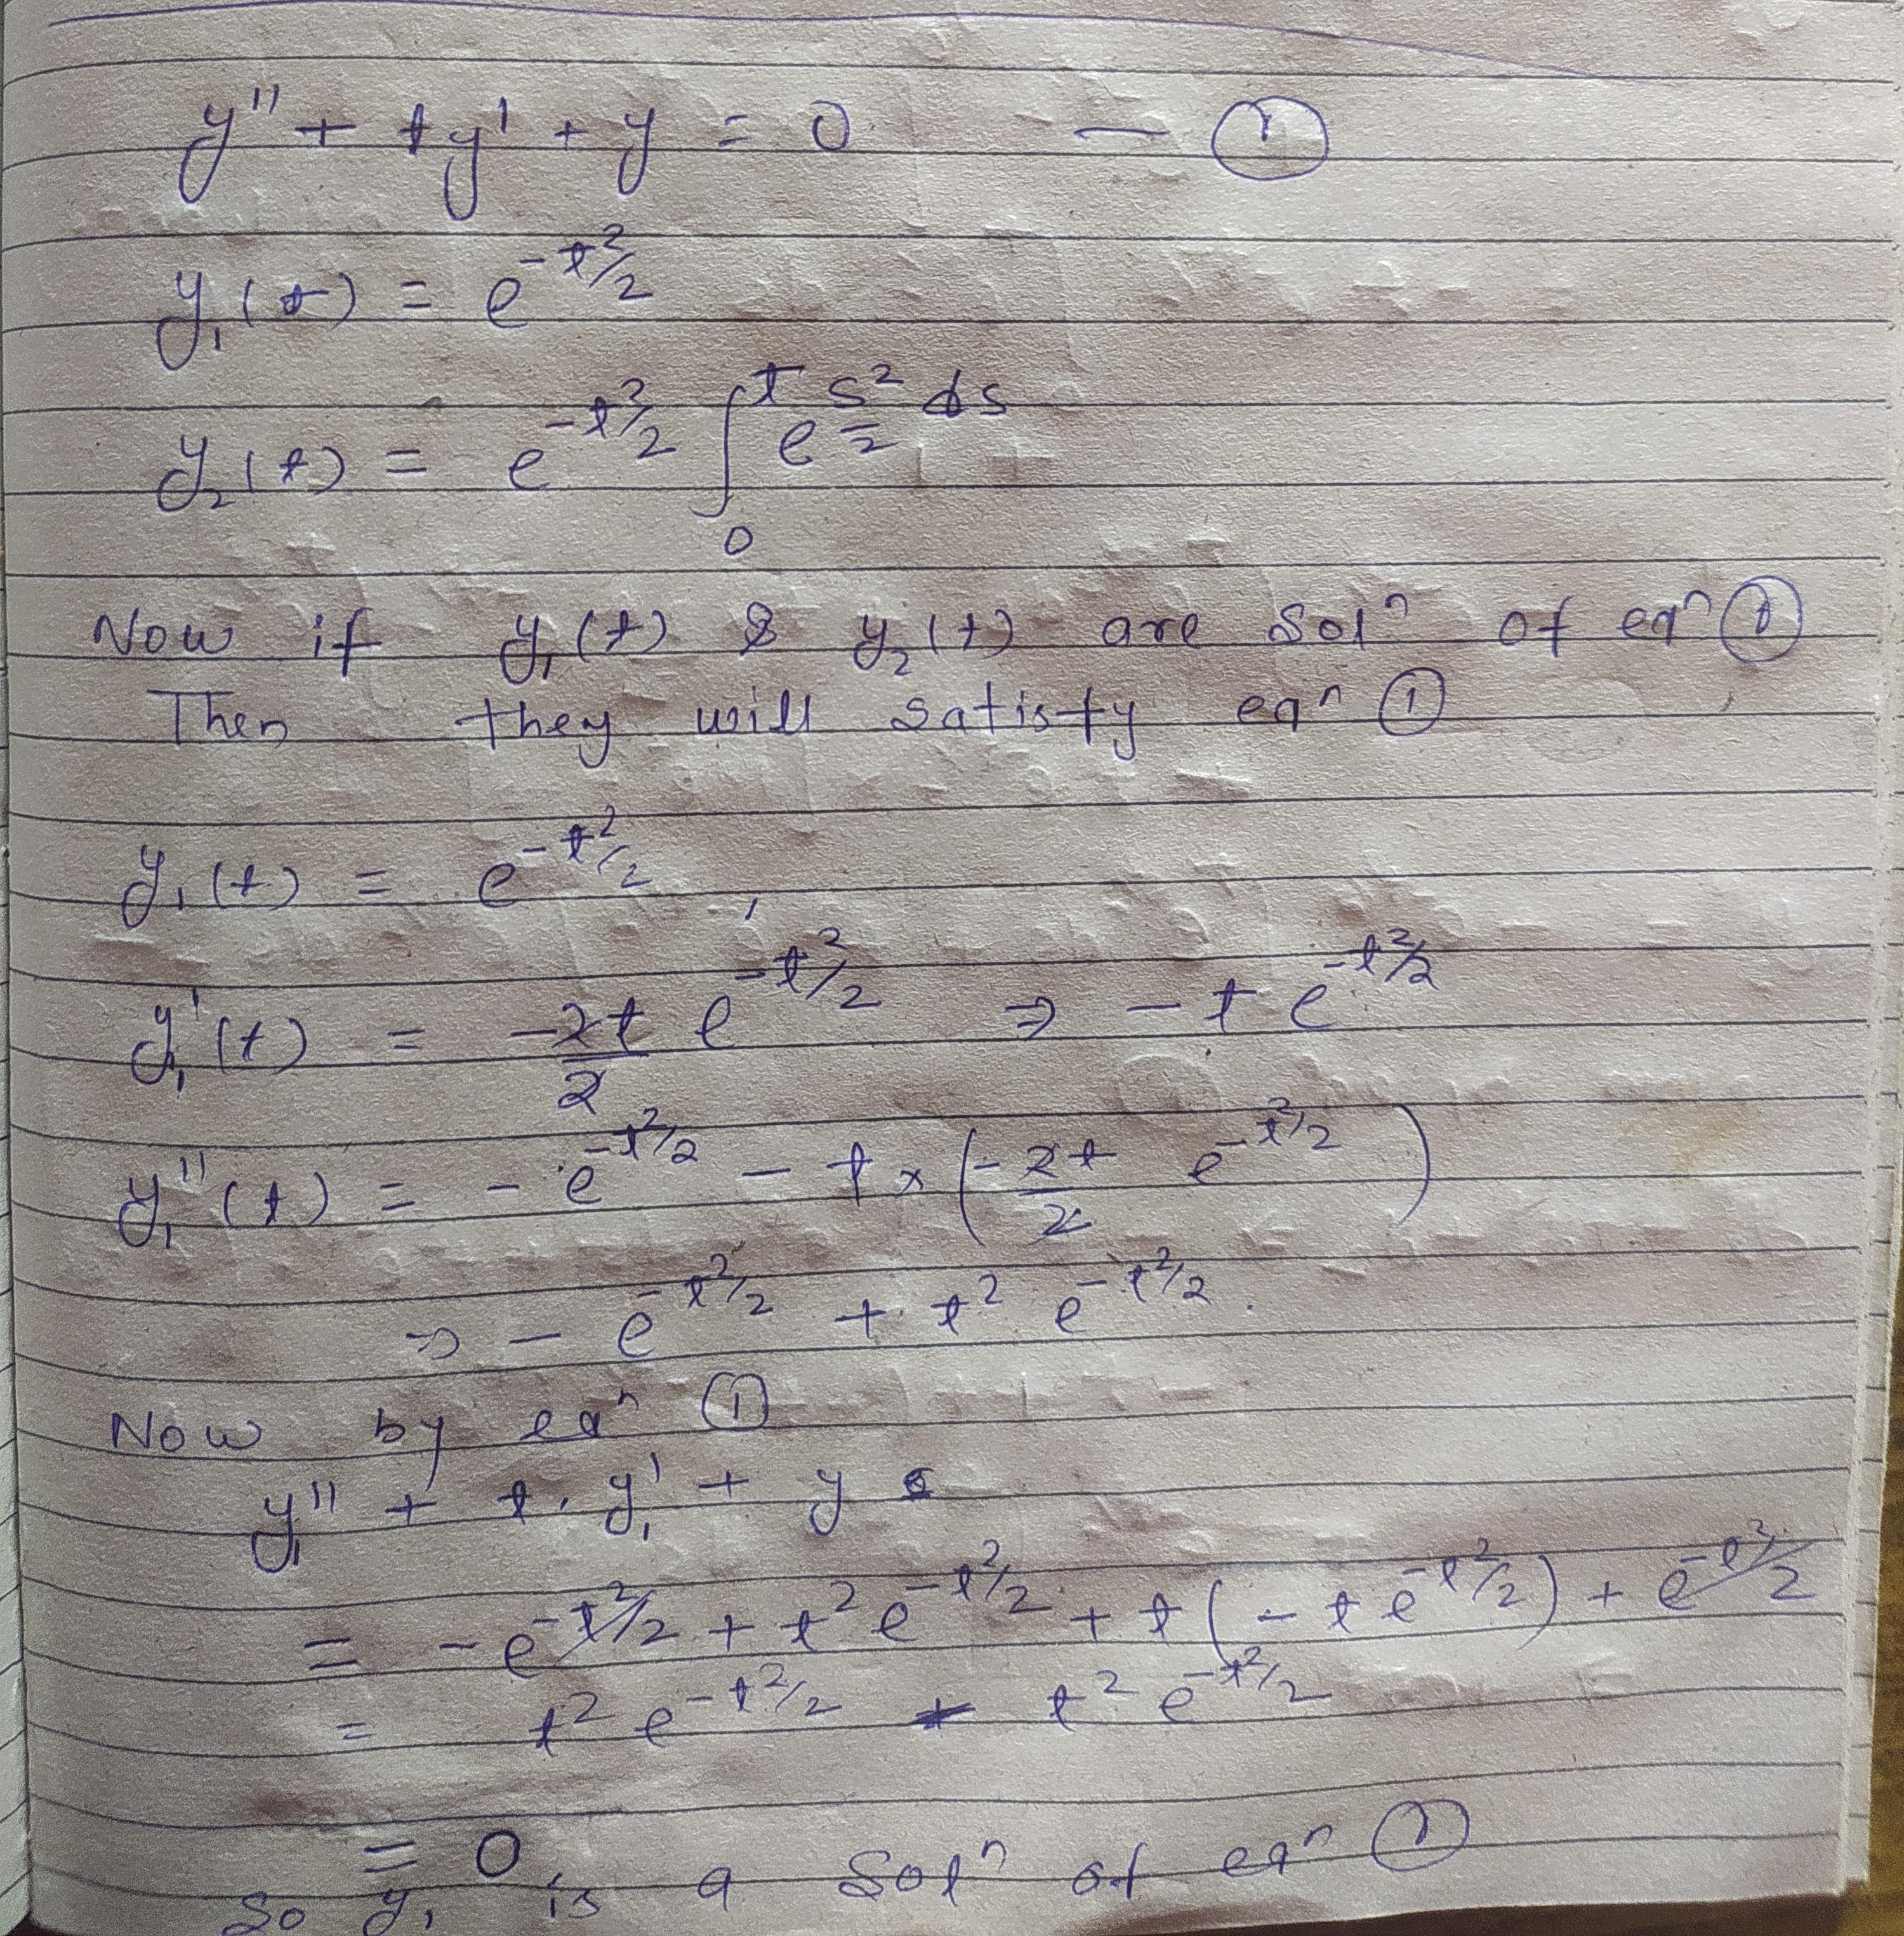 y'' + ty' + y = 0 — ①
y₁(t) = e^{-t²/2}
y₂(t) = e^{-t²/2} ∫₀ᵗ e^{s²/2} ds
Now if y₁(t) & y₂(t) are Solⁿ of eqⁿ ①
Then they will satisfy eqⁿ ①
y₁(t) = e^{-t²/2}
y₁'(t) = -2t/2 e^{-t²/2} ⇒ - t e^{-t²/2}
y₁''(t) = - e^{-t²/2} - t × (-2t/2 e^{-t²/2})
⇒ - e^{-t²/2} + t² e^{-t²/2}.
Now by eqⁿ ①
y₁'' + t. y₁' + y
= - e^{-t²/2} + t² e^{-t²/2} + t(- t e^{-t²/2}) + e^{-t²/2}
= t² e^{-t²/2} - t² e^{-t²/2}
= 0
So y₁ is a Solⁿ of eqⁿ ①